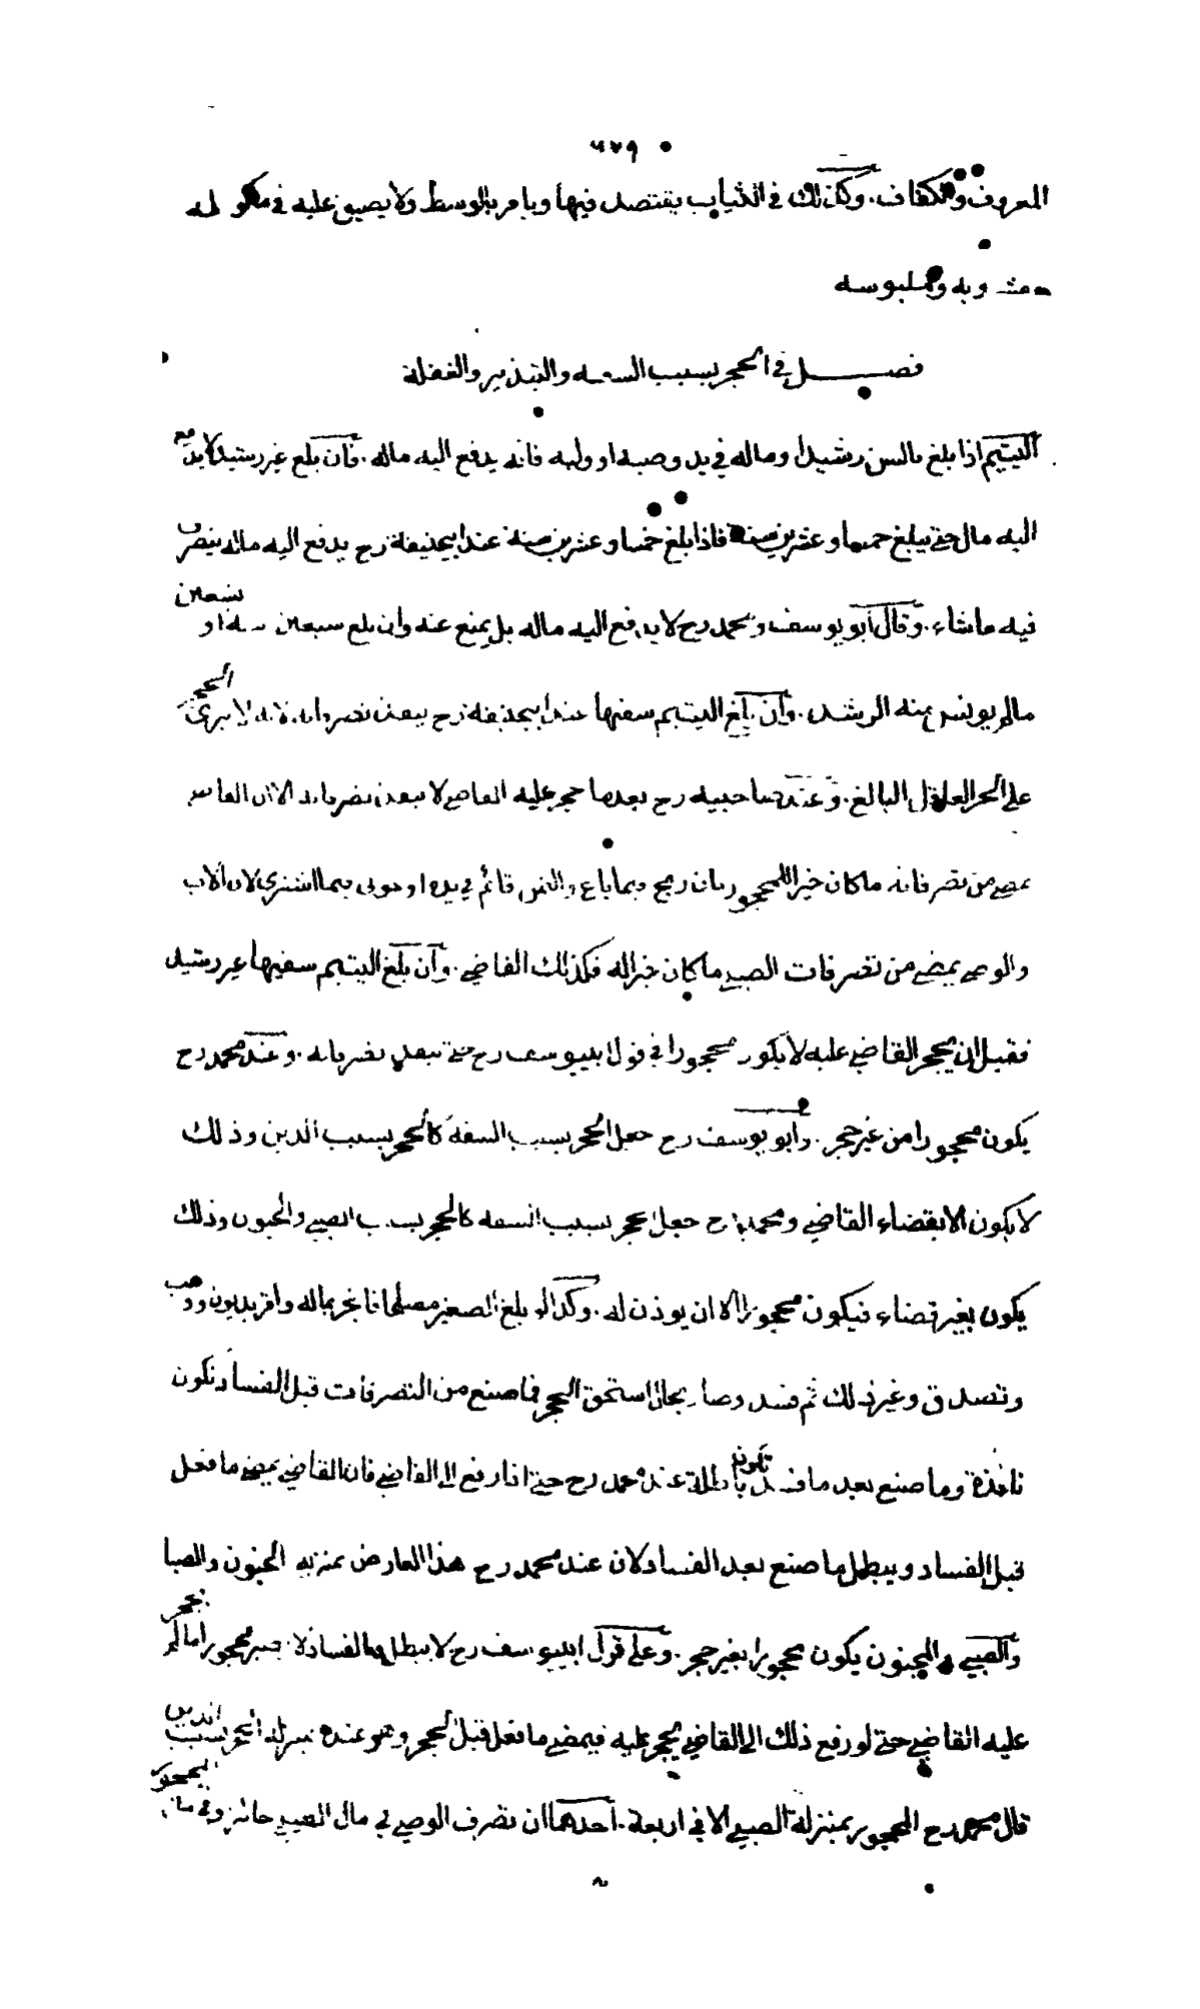 ٦٧٩
المعروف والكفاف. وكذلك في الثياب يقتصد فيها ويامر بالوسط ولا يضيق عليه في ماكوله
ومشروبه وملبوسه
فصل في الحجر بسبب السفه والتبذير والغفلة
اليتيم اذا بلغ بالسن رشيدا وماله في يد وصيه او وليه فانه يدفع اليه ماله. فان بلغ غير رشيد لا يدفع
اليه مال حتى يبلغ خمسا وعشرين سنة فاذا بلغ خمسا وعشرين سنة عند ابيحنيفة رح يدفع اليه ماله يتصرف
فيه ماشاء. وقال ابو يوسف ومحمد رح لا يدفع اليه ماله بل يمنع عنه وان بلغ سبعين سنة او تسعين
مالم يونس منه الرشد. وان بلغ اليتيم سفيها عند ابيحنيفة رح ينفذ تصرفاته لانه لا يرى الحجر
على الحر العاقل البالغ. وعند صاحبيه رح بعدما حجر عليه القاضي لا ينفذ تصرفاته الا ان القاضي
يمضي من تصرفاته ما كان خيرا للمحجور بان ربح فيما باع والثمن قائم في يده او حوبي فيما اشترى لان الاب
والوصي يمضي من تصرفات الصبي ما كان خيرا له فكذلك القاضي. وان بلغ اليتيم سفيها غير رشيد
فقبل ان يحجر القاضي عليه لا يكون محجورا في قول ابييوسف رح حتى تنفذ تصرفاته. وعند محمد رح
يكون محجورا من غير حجر. وابو يوسف رح جعل الحجر بسبب السفه كالحجر بسبب الدين وذلك
لا يكون الا بقضاء القاضي ومحمد رح جعل الحجر بسبب السفه كالحجر بسبب الصبي والجنون وذلك
يكون بغير قضاء فيكون محجورا الا ان يوذن له. وكذا لو بلغ الصغير مصلحا فاتجر بماله واقر بديون ووهب
وتصدق وغير ذلك ثم فسد وصار بحال استحق الحجر فما صنع من التصرفات قبل الفساد تكون
نافذة وما صنع بعد ما فسد تكون باطلة عند محمد رح حتى اذا رفع الى القاضي فان القاضي يمضي ما فعل
قبل الفساد ويبطل ما صنع بعد الفساد لان عند محمد رح هذا العارض بمنزلة الجنون والصبا
والصبي والمجنون يكون محجورا بغير حجر. وعلى قول ابييوسف رح لا يبطل بالفساد فلا يصير محجورا مالم يحجر
عليه القاضي حتى لو رفع ذلك الى القاضي يحجر عليه فيمضي ما فعل قبل الحجر وهو عنده بمنزلة الحجر بسبب الدين
قال محمد رح المحجور بمنزلة الصبي الا في اربعة. احدها ان تصرف الوصي في مال الصبي جائز وفي مال المحجور